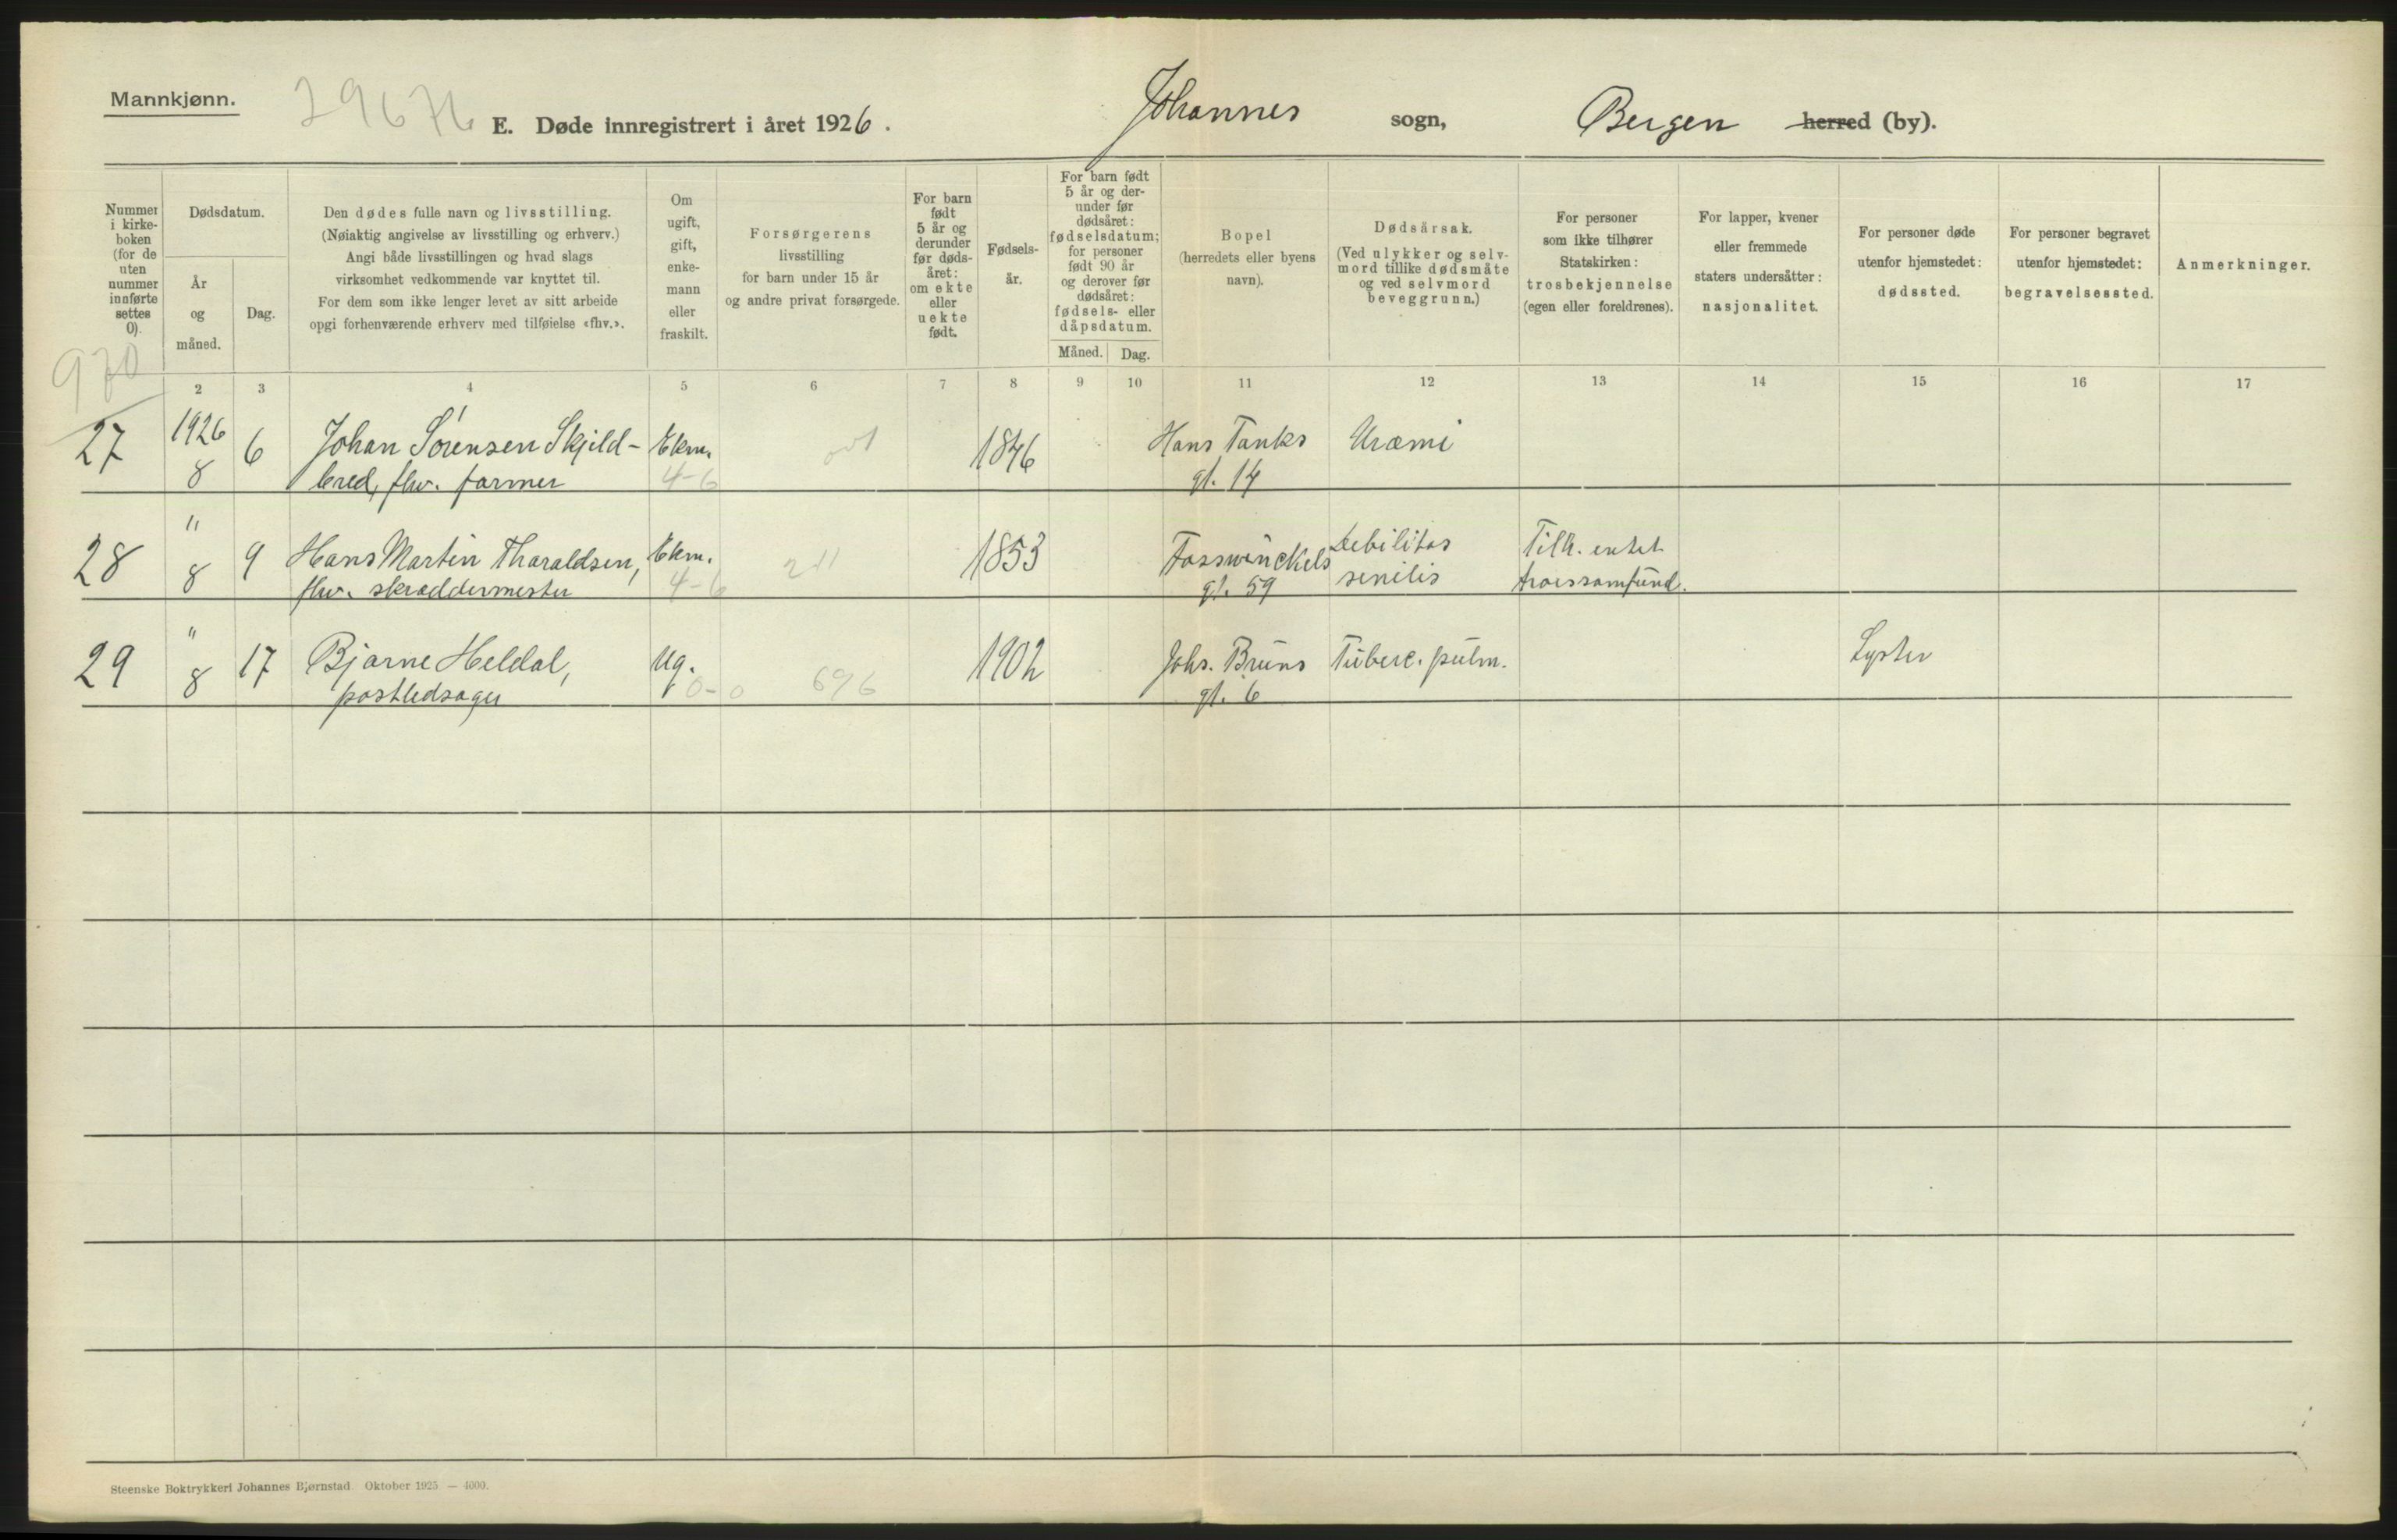 Mannkjønn.
29676
E. Døde innregistrert i året 1926.
Johannes sogn, Bergen herred (by).
Nummer i kirkeboken (for de uten nummer innførte settes 0).
Dødsdatum.
År og måned.
Dag.
Den dødes fulle navn og livsstilling.
(Nøiaktig angivelse av livsstilling og erhverv.)
Angi både livsstillingen og hvad slags
virksomhet vedkommende var knyttet til.
For dem som ikke lenger levet av sitt arbeide
opgi forhenværende erhverv med tilføielse «fhv.».
Om ugift, gift, enkemann eller fraskilt.
Forsørgerens
livsstilling
for barn under 15 år
og andre privat forsørgede.
For barn født 5 år og derunder før dødsåret: om ekte eller uekte født.
Fødselsår.
For barn født
5 år og derunder før
dødsåret:
fødselsdatum;
for personer
født 90 år
og derover før
dødsåret:
fødsels- eller
dåpsdatum.
Måned. Dag.
Bopel
(herredets eller byens
navn).
Dødsårsak.
(Ved ulykker og selvmord tillike dødsmåte
og ved selvmord
beveggrunn.)
For personer
som ikke tilhører
Statskirken:
trosbekjennelse
(egen eller foreldrenes).
For lapper, kvener
eller fremmede
staters undersåtter:
nasjonalitet.
For personer døde
utenfor hjemstedet:
dødssted.
For personer begravet
utenfor hjemstedet:
begravelsessted.
Anmerkninger.
970
2 3 4 5 6 7 8 9 10 11 12 13 14 15 16 17
27 1926 8 6 Johan Sørensen Skjildbred, fhv. farmer Ekm. 4-6 1846 Hans Tanks gt. 14 Uræmi
28 " 8 9 Hans Martin Tharaldsen, fhv. skræddermester Ekm. 4-6 211 1853 Fosswinckels gt. 59 Debilitas senilis Tilh. intet troessamfund.
29 " 8 17 Bjarne Heldal, postledsager Ug. 0-0 696 1902 Johs. Bruns gt. 6 Tuberc. pulm. Lyster
Steenske Boktrykkeri Johannes Bjørnstad. Oktober 1925 — 4000.